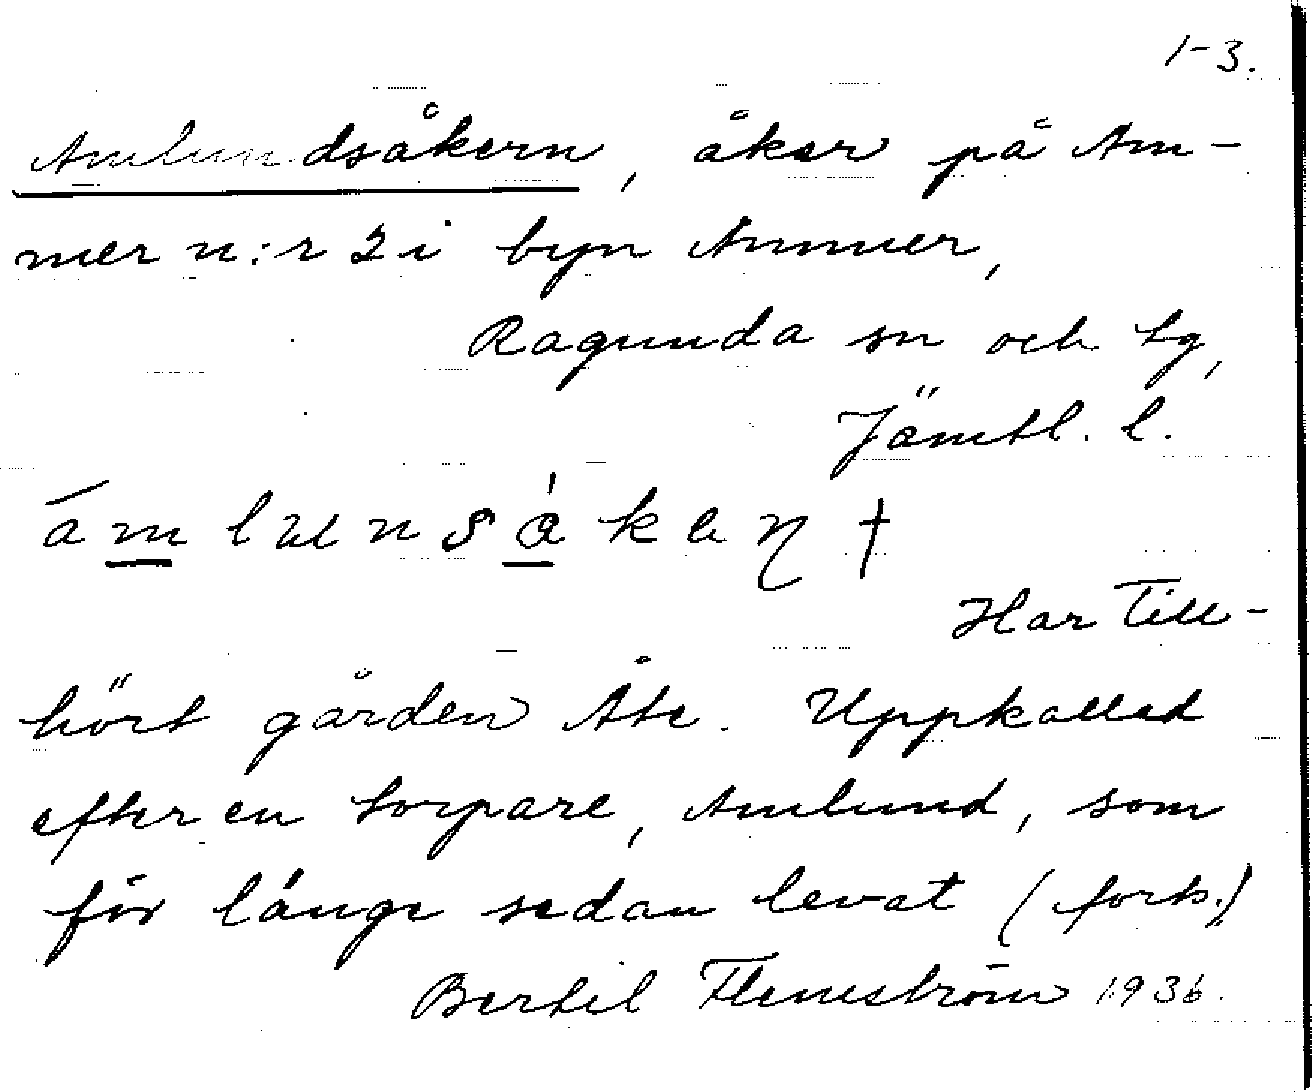 1-3.
Amlundsåkern, åker på Am-
mer n:r 2 i byn Ammer,
Ragunda sn och tg,
Jämtl. l.
ámlunsàkaŋ †
Har till-
hört gården Åte. Uppkallad
efter en torpare, Amlund, som
för länge sedan levat (forts.)
Bertil Flemström 1936.